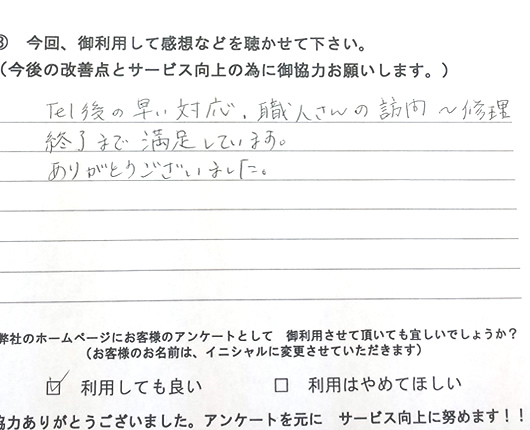 ③ 今回、御利用して感想などを聴かせて下さい。
（今後の改善点とサービス向上の為に御協力お願いします。）
Tel後の早い対応、職人さんの訪問〜修理
終了まで満足しています。
ありがとうございました。
弊社のホームページにお客様のアンケートとして 御利用させて頂いても宜しいでしょうか？
（お客様のお名前は、イニシャルに変更させていただきます）
☑ 利用しても良い □ 利用はやめてほしい
協力ありがとうございました。アンケートを元に サービス向上に努めます！！